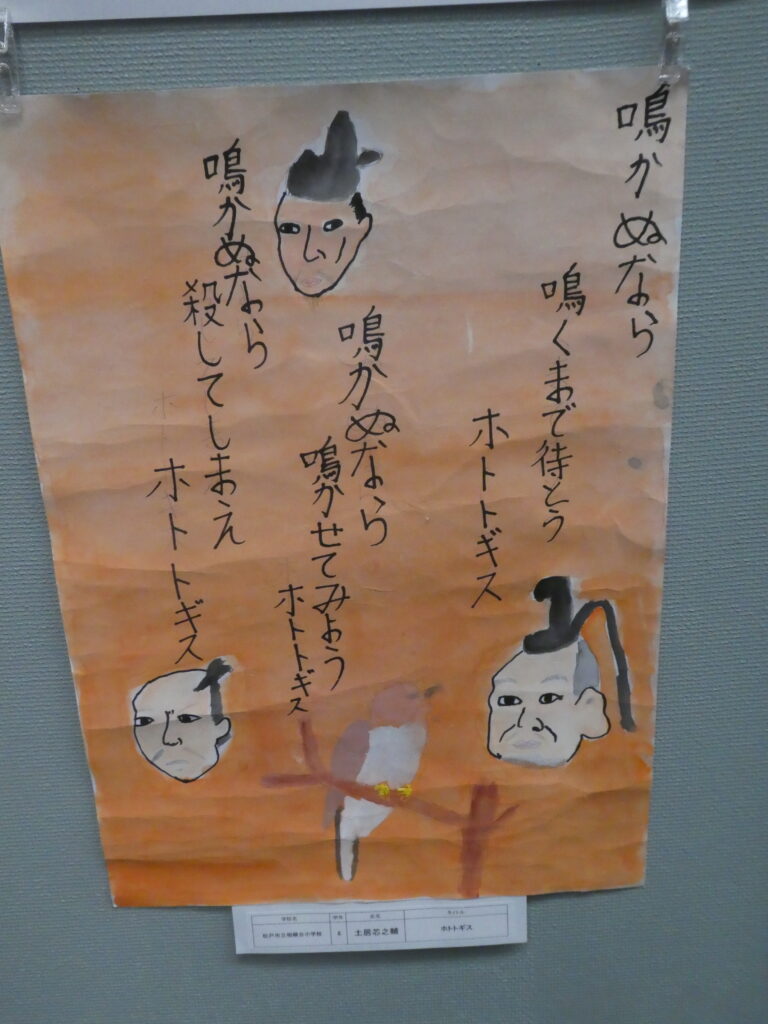 鳴かぬなら
鳴くまで待とう
ホトトギス
鳴かぬなら
鳴かせてみよう
ホトトギス
鳴かぬなら
殺してしまえ
ホトトギス
学校名 学年 氏名 タイトル
松戸市立相模台小学校 6 土居芯之輔 ホトトギス